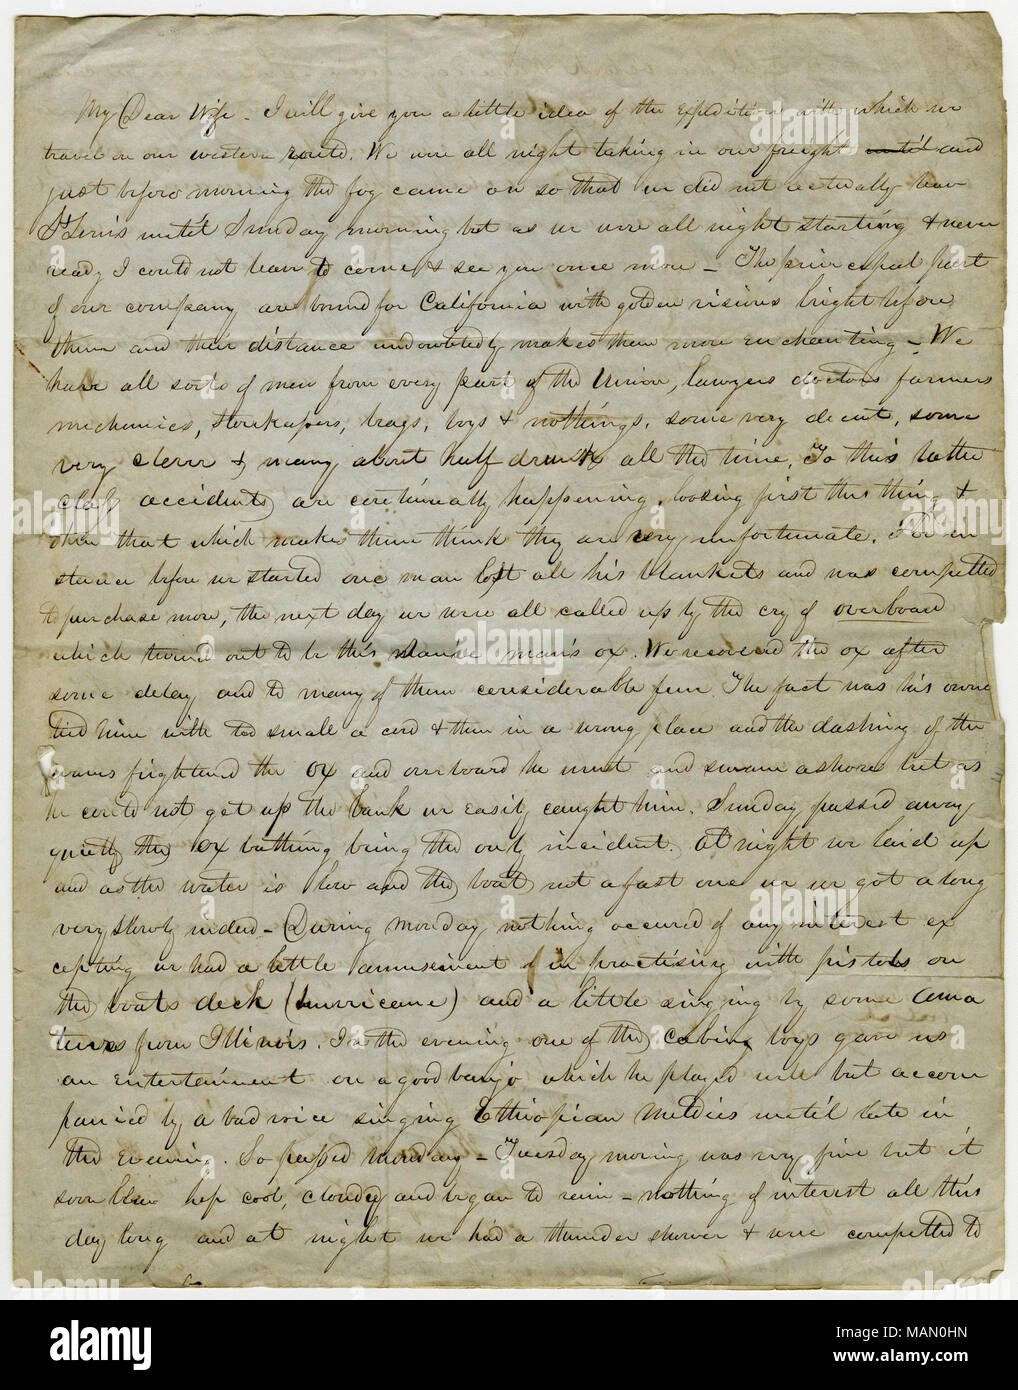 My Dear Wife - I will give you a little idea of the Expedition with which we
travel on our western route. We were all night taking in our freight until and
just before morning the fog came on so that we did not actually leave
St Louis until Sunday morning but as we were all night starting & never
ready I could not leave to come & see you once more - The principal part
of our company are bound for California with golden visions bright before
them and their distance undoubtedly makes them more enchanting - We
have all sorts of men from every part of the Union, lawyers doctors farmers
mechanics, storekeepers, brags, boys & nothings, some very decent, some
very clever & many about half drunk all the time, To this latter
class accidents are continually happening, loosing first this thing &
then that which makes them think they are very unfortunate. For in
stance before we started one man lost all his blankets and was compelled
to purchase more, the next day we were all called up by the cry of overboard
which turned out to be this same man's ox. We recovered the ox after
some delay and to many of them considerable fun. The fact was his owner
tied him with too small a cord & then in a wrong place and the dashing of the
waves frightened the ox and overboard he went and swam ashore but as
he could not get up the bank we easily caught him. Sunday passed away
quietly the ox bathing being the only incident. At night we laid up
and as the water is low and the boat not a fast one we got along
very slowly indeed - During Monday nothing occured of any interest ex
cepting we had a little amusement in practising with pistols on
the boats deck (hurricane) and a little singing by some ama
teurs from Illinois. In the evening one of the Cabin boys gave us
an entertainment on a good banjo which he played well but accom
panied by a bad voice singing Ethiopian Melodies until late in
the evening. So passed Monday - Tuesday morning was very fine but it
soon blew up cool, cloudy and began to rain - nothing of interest all this
day long and at night we had a thunder shower & were compelled to
alamy
Image ID: MAN0HN
www.alamy.com